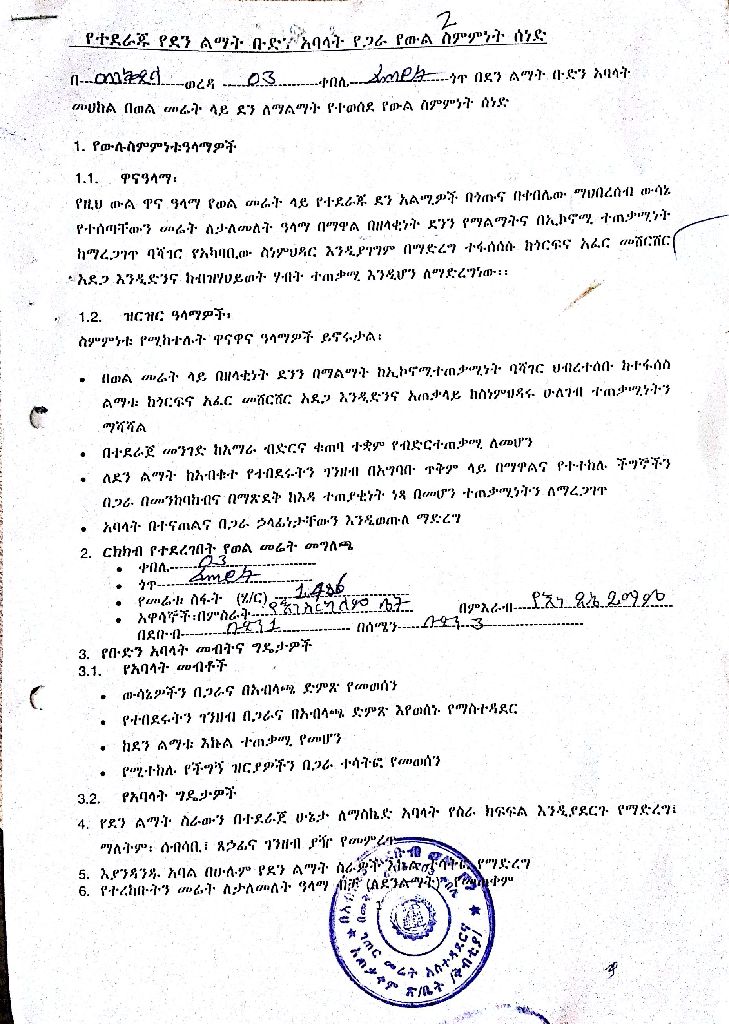 2
የተደራጁ የደን ልማት ቡድን አባላት የጋራ የውል ስምምነት ሰነድ
በ ወረዳ 03 ቀበሌ ጎጥ በደን ልማት ቡድን አባላት
መሀከል በወል መሬት ላይ ደን ለማልማት የተወሰደ የውል ስምምነት ሰነድ
1. የውሉስምምነቱዓላማዎች
1.1. ዋናዓላማ፡
የዚህ ውል ዋና ዓላማ የወል መሬት ላይ የተደራጁ ደን አልሚዎች በጎጡና በቀበሌው ማህበረሰብ ውሳኔ
የተሰጣቸውን መሬት ለታለመለት ዓላማ በማዋል በዘላቂነት ደንን የማልማትና በኢኮኖሚ ተጠቃሚነት
ከማረጋገጥ ባሻገር የአካባቢው ስነምህዳር እንዲያገግም በማድረግ ተፋሰሱ ከጎርፍና አፈር መሸርሸር
አደጋ እንዲድንና ከብዝሃህይወት ሃብት ተጠቃሚ እንዲሆን ለማድረግነው፡፡
1.2. ዝርዝር ዓላማዎች፡
ስምምነቱ የሚከተሉት ዋናዋና ዓላማዎች ይኖሩታል፡
• በወል መሬት ላይ በዘላቂነት ደንን በማልማት ከኢኮኖሚተጠቃሚነት ባሻገር ህብረተሰቡ ከተፋሰስ
ልማቱ ከጎርፍና አፈር መሸርሸር አደጋ እንዲድንና አጠቃላይ ከስነምህዳሩ ሁለገብ ተጠቃሚነትን
ማሻሻል
• በተደራጀ መንገድ ከአማራ ብድርና ቁጠባ ተቋም የብድርተጠቃሚ ለመሆን
• ለደን ልማት ከአብቁተ የተበደሩትን ገንዘብ በአግባቡ ጥቅም ላይ በማዋልና የተተከሉ ችግኞችን
በጋራ በመንከባከብና በማጽደቅ ከእዳ ተጠያቂነት ነጻ በመሆን ተጠቃሚነትን ለማረጋገጥ
• አባላት በተናጠልና በጋራ ኃላፊነታቸውን እንዲወጡ ማድረግ
2. ርክክብ የተደረገበት የወል መሬት መግለጫ
• ቀበሌ 03
• ጎጥ
• የመሬቱ ስፋት (ሄ/ር)
• አዋሳኞች፡በምስራቅ በምእራብ
በደቡብ በሰሜን
3. የቡድን አባላት መብትና ግዴታዎች
3.1. የአባላት መብቶች
• ውሳኔዎችን በጋራና በአብላጫ ድምጽ የመወሰን
• የተበደሩትን ገንዘብ በጋራና በአብላጫ ድምጽ እየወሰኑ የማስተዳደር
• ከደን ልማቱ እኩል ተጠቃሚ የመሆን
• የሚተከሉ የችግኝ ዝርያዎችን በጋራ ተሳትፎ የመወሰን
3.2. የአባላት ግዴታዎች
4. የደን ልማት ስራውን በተደራጀ ሁኔታ ለማስኬድ አባላት የስራ ክፍፍል እንዲያደርጉ የማድረግ፤
ማለትም፡ ሰብሳቢ፤ ጸኃፊና ገንዘብ ያዥ የመምረጥ
5. እያንዳንዱ አባል በሁሉም የደን ልማት ስራዎች እኩል ተሳትፎ የማድረግ
6. የተረከቡትን መሬት ለታለመለት ዓላማ ብቻ (ለደንልማት) የመጠቀም
ገጠር መሬት አስተዳደርና
አጠቃቀም ጽ/ቤት